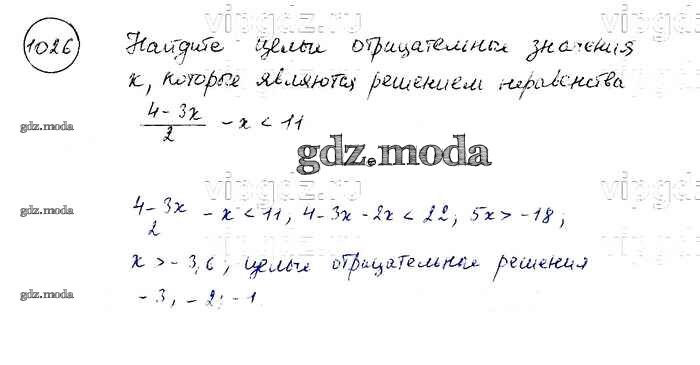 vipgdz.ru vipgdz.ru
1026 Найдите целые отрицательные значения
x, которые являются решением неравенства
(4-3x)/2 - x < 11
gdz.moda
gdz.moda
vipgdz.ru vipgdz.ru
gdz.moda
(4-3x)/2 - x < 11; 4-3x-2x < 22; 5x > -18;
x > -3,6; целые отрицательные решения
gdz.moda
-3; -2; -1
vipgdz.ru vipgdz.ru